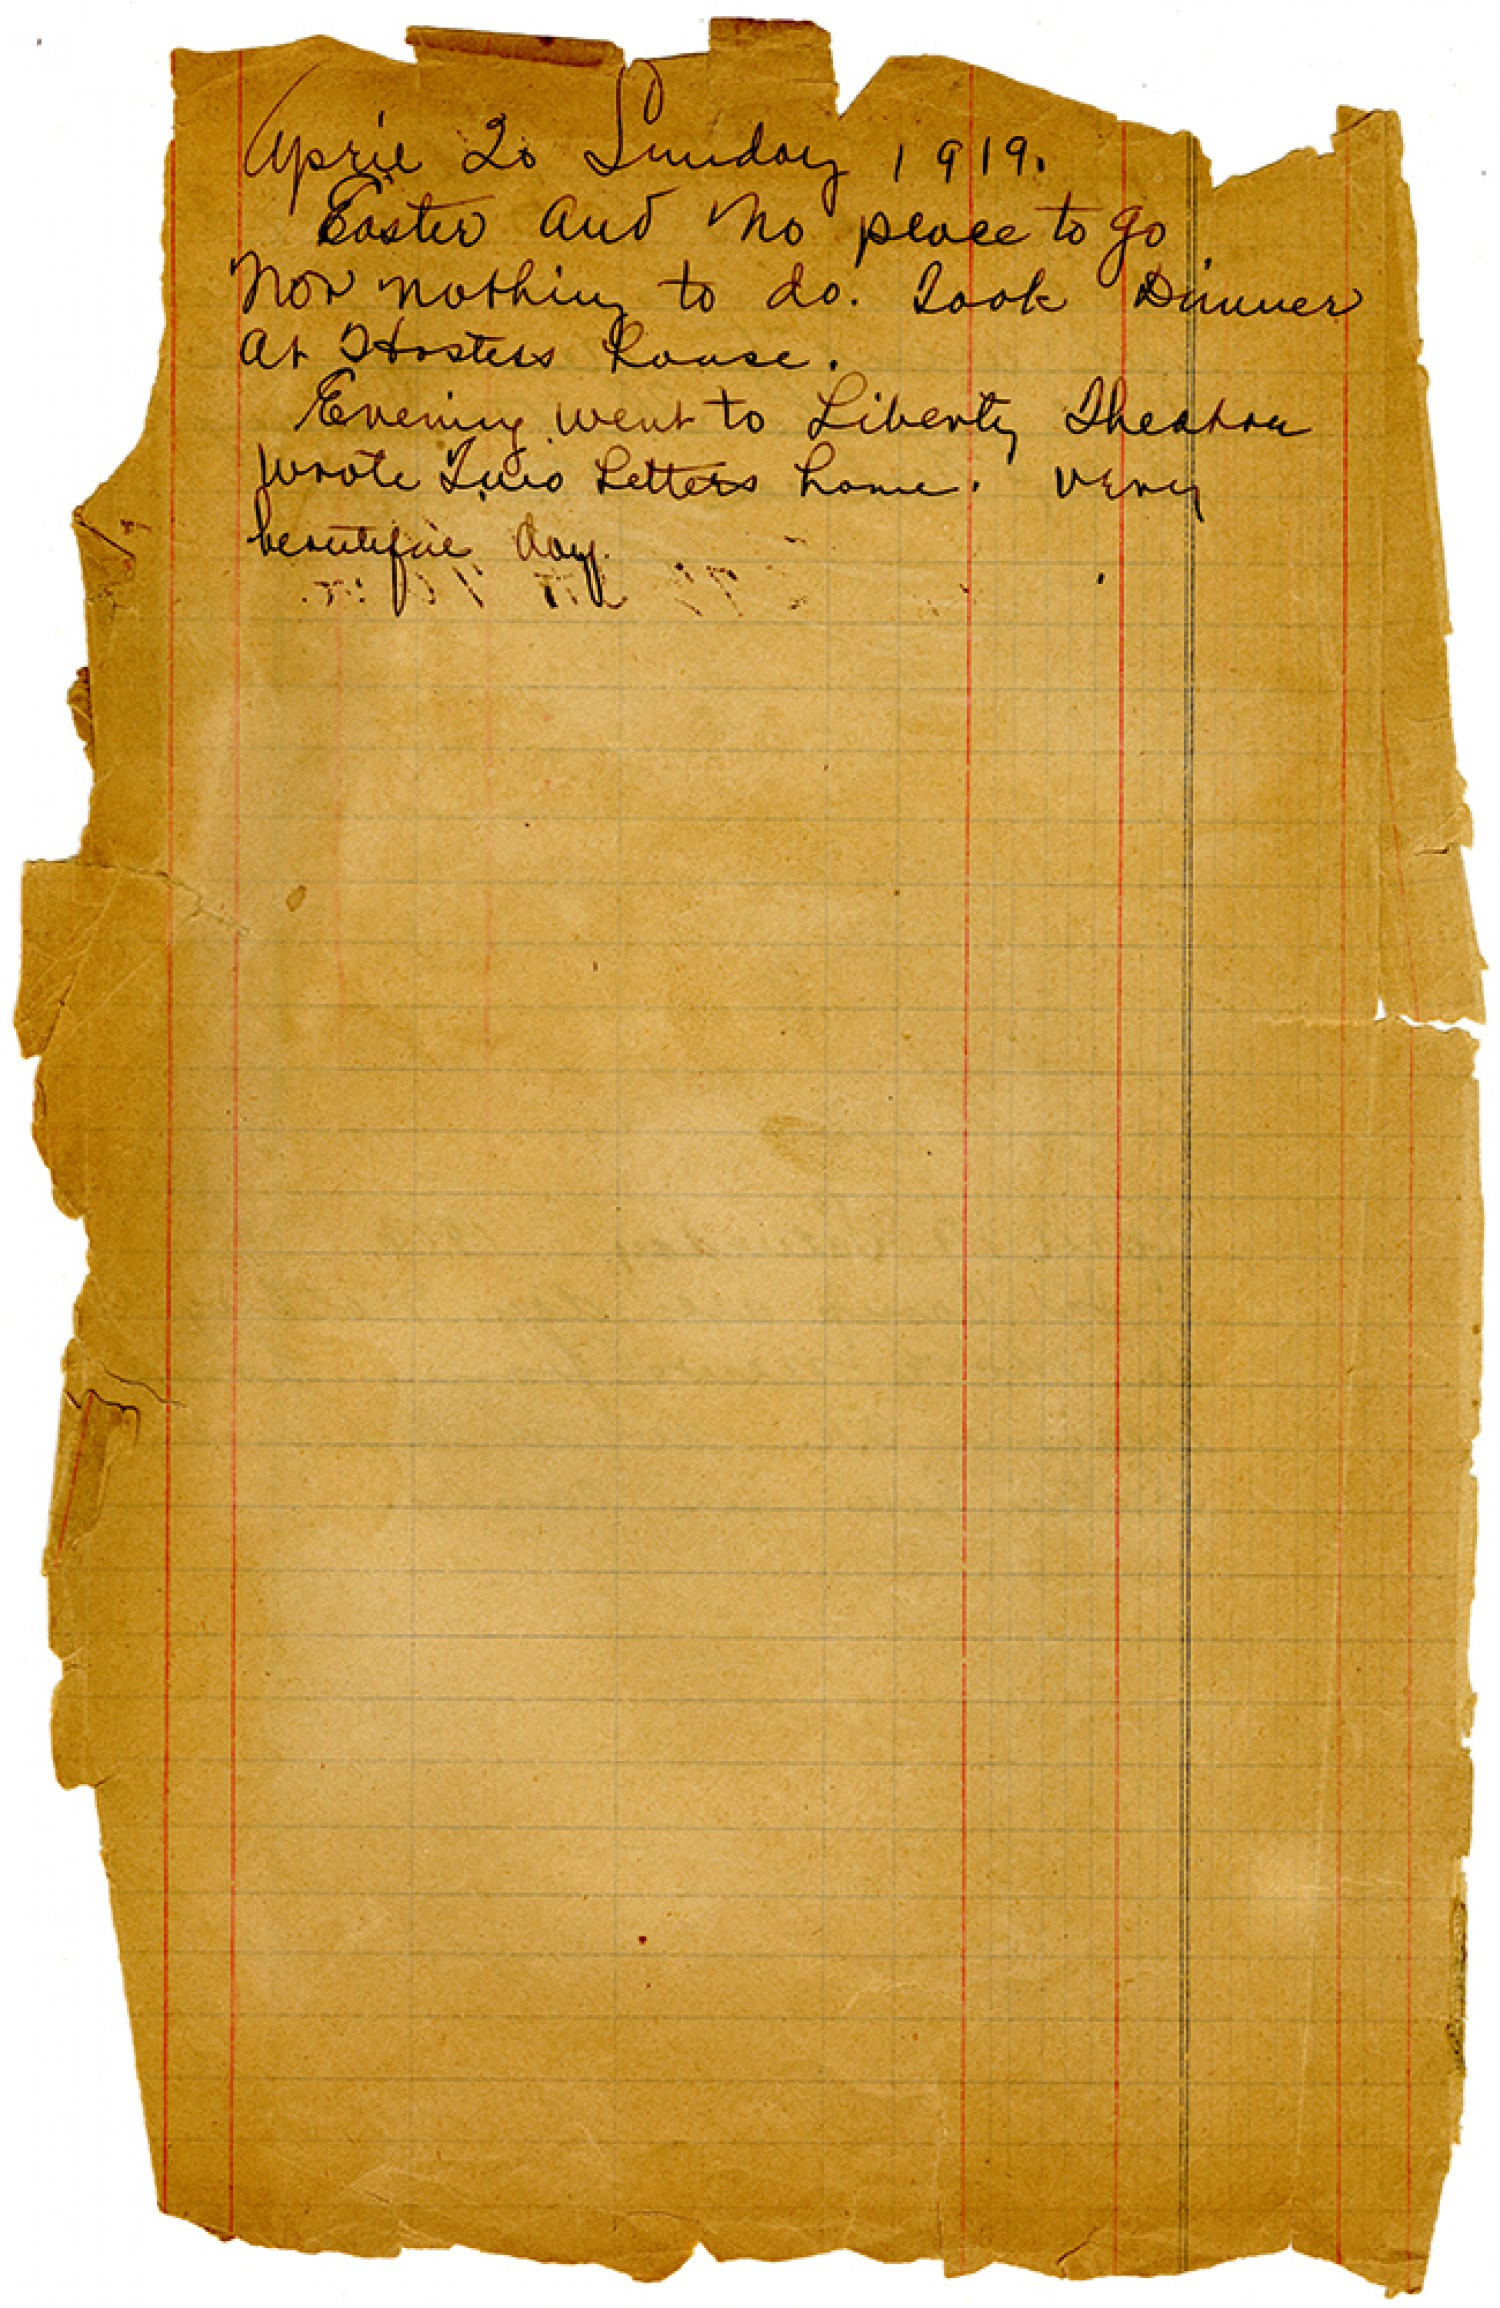 April 20 Sunday 1919.
Easter and no place to go
Nor nothing to do. Took Dinner
At Hostess House.
Evening went to Liberty Theatre
Wrote Two Letters home. Very
beautiful day.